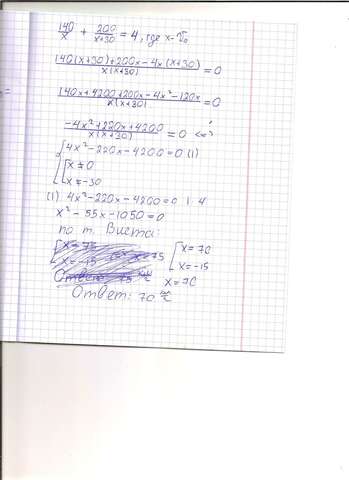 140/x + 200/(x+30) = 4, где x - V₀
(140(x+30)+200x-4x(x+30))/(x(x+30)) = 0
(140x+4200+200x-4x²-120x)/(x(x+30)) = 0
(-4x²+220x+4200)/(x(x+30)) = 0 <=>
4x²-220x-4200=0 (1)
x≠0
x≠-30
(1) 4x²-220x-4200=0 | :4
x²-55x-1050=0
по т. Виета:
x=75 x=75 x=70
x=-15 x=-15
Ответ: 75 км/ч x=70
Ответ: 70 км/ч